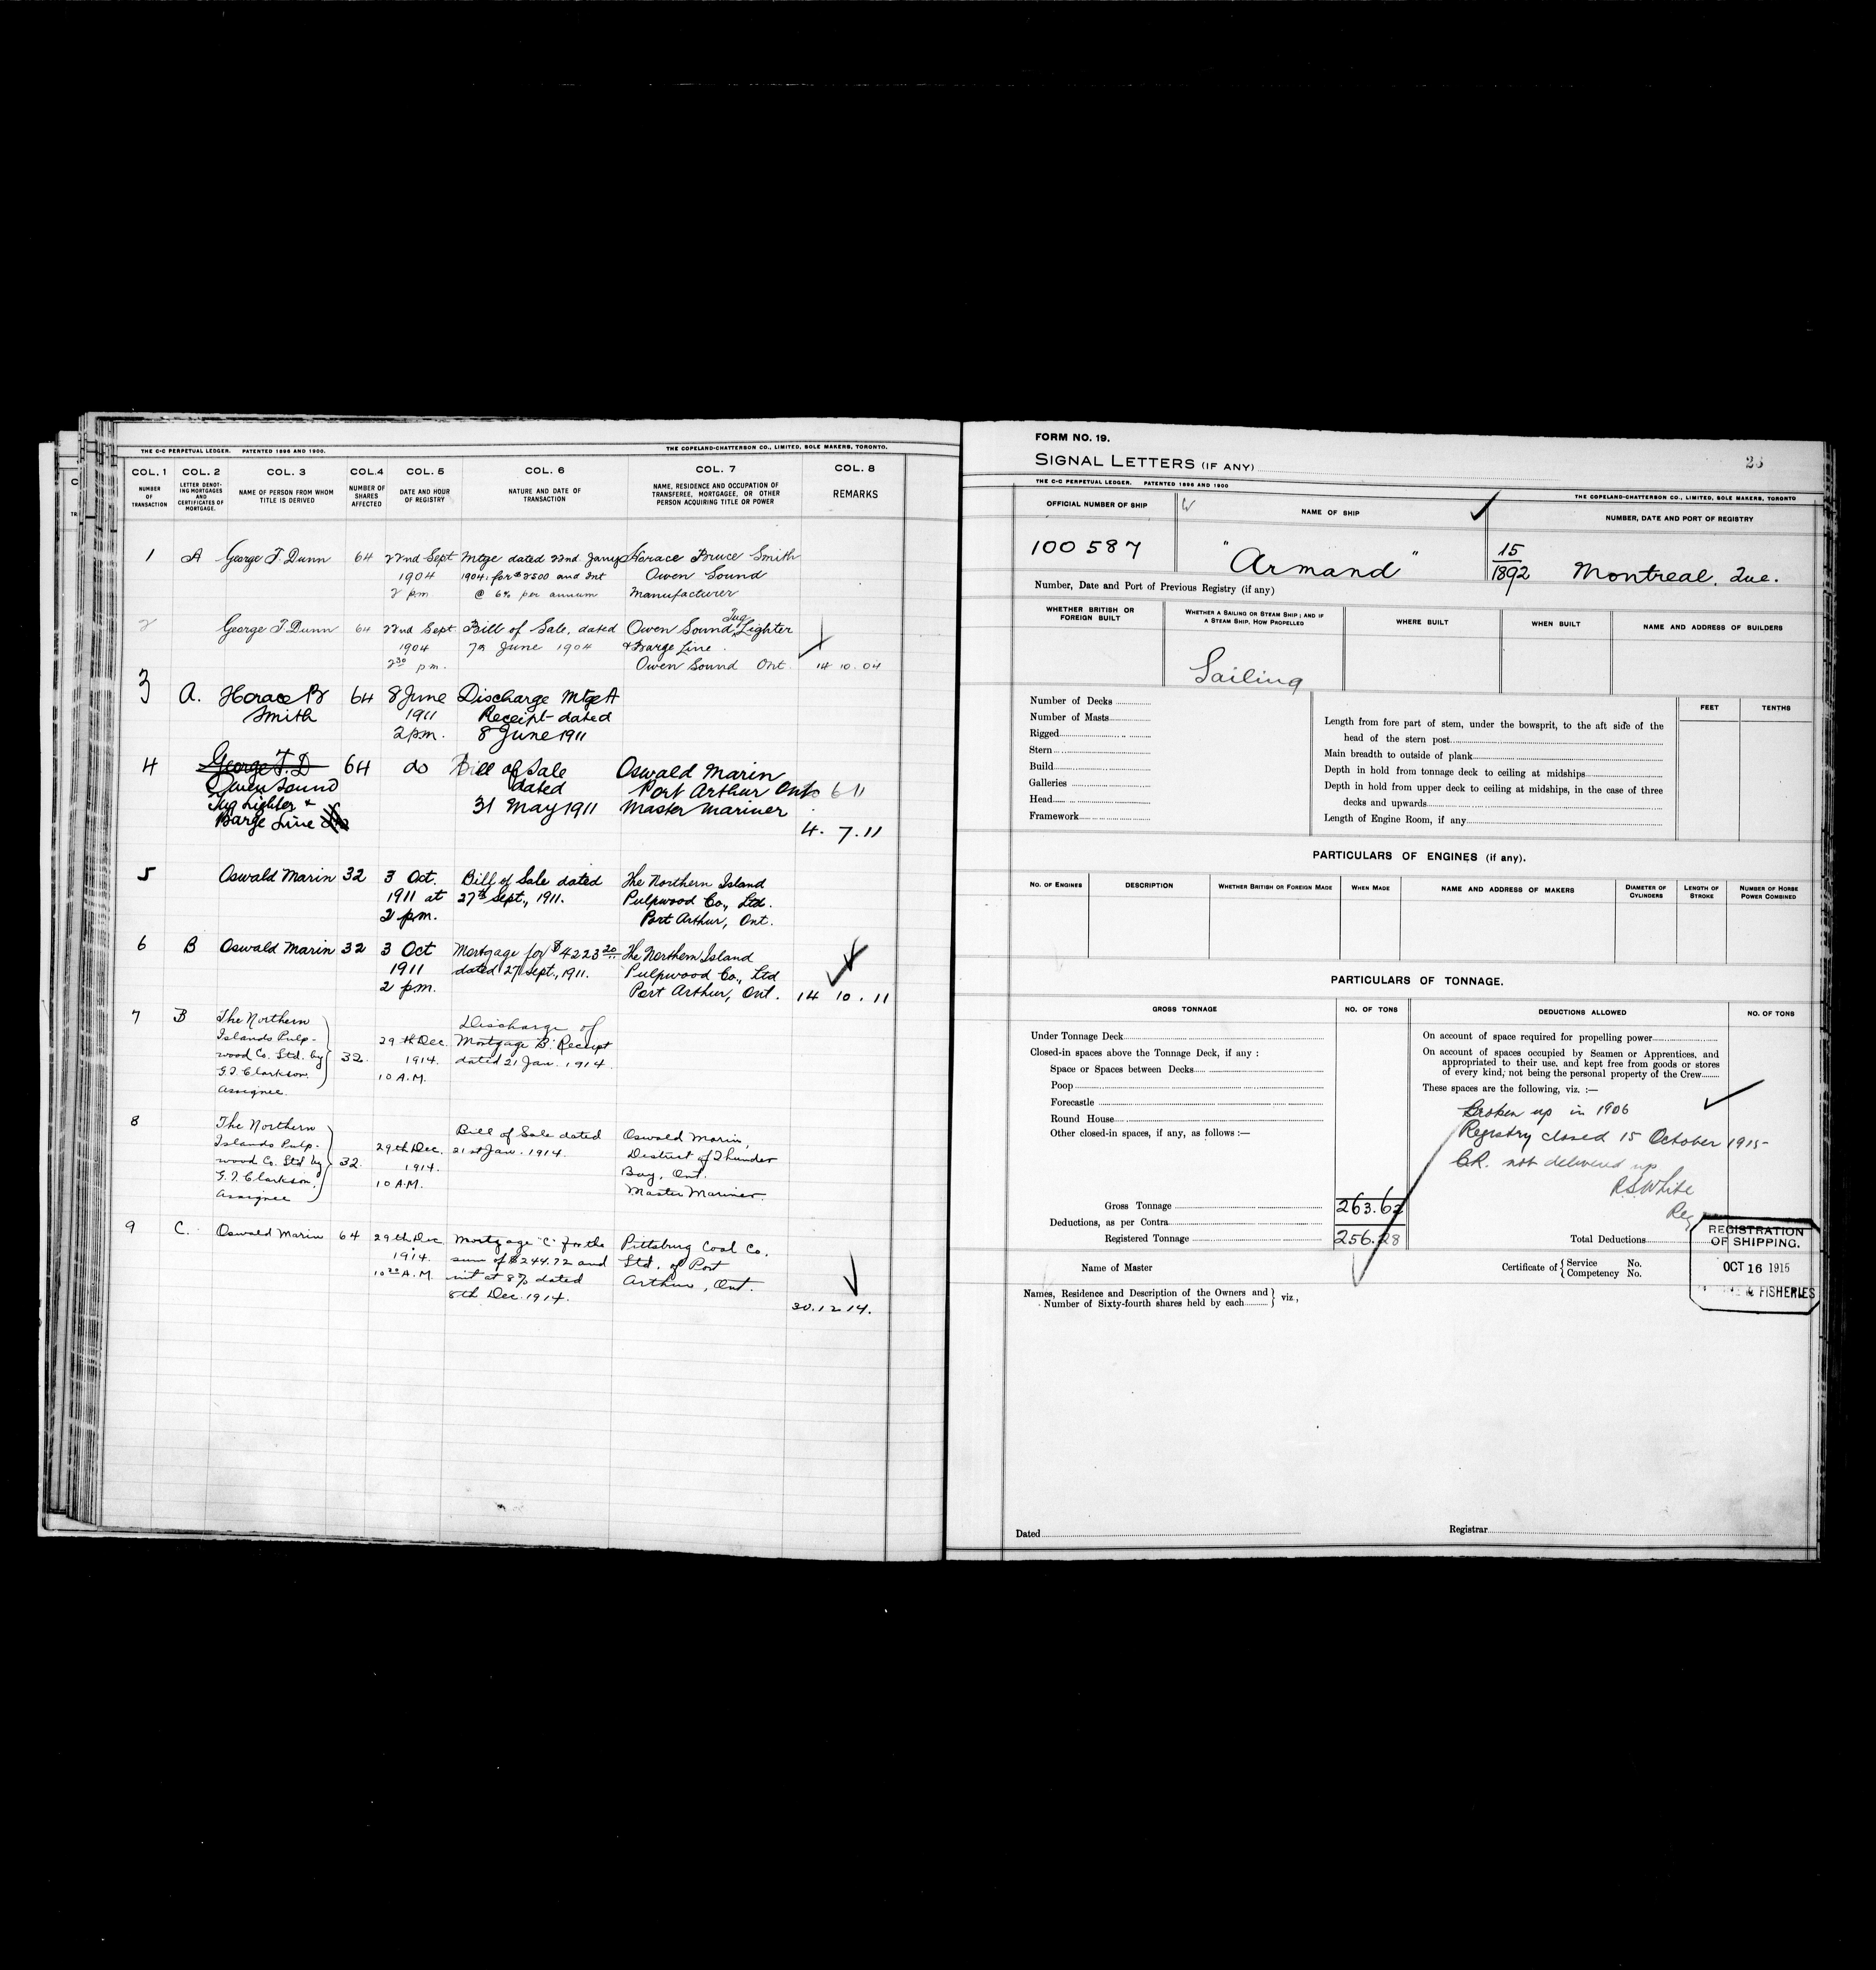 THE C-C PERPETUAL LEDGER. PATENTED 1896 AND 1900.
THE COPELAND-CHATTERSON CO., LIMITED, SOLE MAKERS, TORONTO.
COL. 1 COL. 2 COL. 3 COL. 4 COL. 5 COL. 6 COL. 7 COL. 8
NUMBER OF TRANSACTION
LETTER DENOTING MORTGAGES AND CERTIFICATES OF MORTGAGE.
NAME OF PERSON FROM WHOM TITLE IS DERIVED
NUMBER OF SHARES AFFECTED
DATE AND HOUR OF REGISTRY
NATURE AND DATE OF TRANSACTION
NAME, RESIDENCE AND OCCUPATION OF TRANSFEREE, MORTGAGEE, OR OTHER PERSON ACQUIRING TITLE OR POWER
REMARKS
1 A George T. Dunn 64 22nd Sept Mtge dated 22nd Jany Horace Bruce Smith
1904 1904, for $2500 and Int Owen Sound
2 pm @ 6% per annum Manufacturer
2 George T. Dunn 64 22nd Sept Bill of Sale, dated Owen Sound Tug Lighter
1904 7th June 1904 & Barge Line
2 30 pm. Owen Sound Ont. 14 10. 04
3 A. Horace B 64 8 June Discharge Mtge A
Smith 1911 Receipt dated
2 pm. 8 June 1911
4 George T. D 64 do Bill of Sale Oswald Marin
Owen Sound dated Port Arthur Ont 6 11
Tug Lighter & 31 May 1911 Master Mariner
Barge Line 4. 7. 11
5 Oswald Marin 32 3 Oct. Bill of Sale dated The Northern Island
1911 at 27th Sept., 1911. Pulpwood Co., Ltd.
2 p.m. Port Arthur, Ont.
6 B Oswald Marin 32 3 Oct Mortgage for $4223 20 The Northern Island
1911 dated 27 Sept., 1911. Pulpwood Co., Ltd
2 p.m. Port Arthur, Ont. 14 10. 11
7 B The Northern Discharge of
Islands Pulp- 29th Dec. Mortgage B. Receipt
wood Co. Ltd. by 32. 1914. dated 21 Jan. 1914.
G.T. Clarkson. 10 A.M.
Assignee.
8 The Northern Bill of Sale dated Oswald Marin,
Islands Pulp- 29th Dec. 21st Jan. 1914. District of Thunder
wood Co. Ltd by 32. 1914. Bay, Ont.
G.T. Clarkson, 10 A.M. Master Mariner.
Assignee
9 C. Oswald Marin 64 29th Dec Mortgage "C" for the Pittsburg Coal Co.
1914. sum of $244.72 and Ltd. of Port
10 30 A.M. int at 8% dated Arthur, Ont.
8th Dec. 1914.
30. 12 14.
FORM NO. 19.
SIGNAL LETTERS (IF ANY)
THE C-C PERPETUAL LEDGER. PATENTED 1896 AND 1900
THE COPELAND-CHATTERSON CO., LIMITED, SOLE MAKERS, TORONTO
OFFICIAL NUMBER OF SHIP NAME OF SHIP NUMBER, DATE AND PORT OF REGISTRY
100587 "Armand" 15/1892 Montreal, Que.
Number, Date and Port of Previous Registry (if any)
WHETHER BRITISH OR FOREIGN BUILT
WHETHER A SAILING OR STEAM SHIP; AND IF A STEAM SHIP, HOW PROPELLED
WHERE BUILT
WHEN BUILT
NAME AND ADDRESS OF BUILDERS
Sailing
Number of Decks
Number of Masts
Rigged
Stern
Build
Galleries
Head
Framework
FEET TENTHS
Length from fore part of stem, under the bowsprit, to the aft side of the
head of the stern post
Main breadth to outside of plank
Depth in hold from tonnage deck to ceiling at midships
Depth in hold from upper deck to ceiling at midships, in the case of three
decks and upwards
Length of Engine Room, if any
PARTICULARS OF ENGINES (if any).
NO. OF ENGINES
DESCRIPTION
WHETHER BRITISH OR FOREIGN MADE
WHEN MADE
NAME AND ADDRESS OF MAKERS
DIAMETER OF CYLINDERS
LENGTH OF STROKE
NUMBER OF HORSE POWER COMBINED
PARTICULARS OF TONNAGE.
GROSS TONNAGE NO. OF TONS DEDUCTIONS ALLOWED NO. OF TONS
Under Tonnage Deck
Closed-in spaces above the Tonnage Deck, if any :
Space or Spaces between Decks
Poop
Forecastle
Round House
Other closed-in spaces, if any, as follows :—
Gross Tonnage 263.62
Deductions, as per Contra
Registered Tonnage 256.28
On account of space required for propelling power
On account of spaces occupied by Seamen or Apprentices, and
appropriated to their use, and kept free from goods or stores
of every kind, not being the personal property of the Crew
These spaces are the following, viz. :—
Broken up in 1906
Registry closed 15 October 1915
C.R. not delivered up
R.S. White
Reg
Total Deductions
REGISTRATION
OF SHIPPING.
OCT 16 1915
& FISHERIES
Name of Master
Certificate of { Service No.
Competency No.
Names, Residence and Description of the Owners and } viz,
Number of Sixty-fourth shares held by each
Dated
Registrar